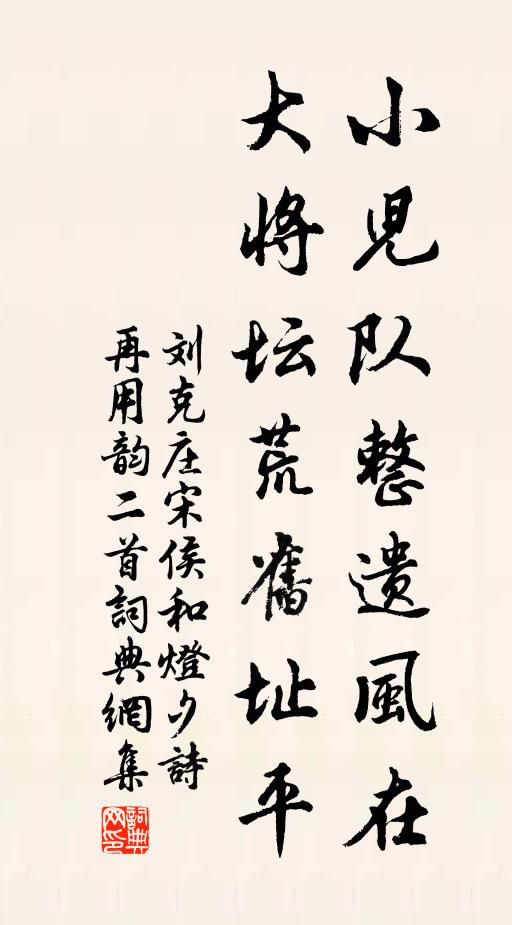 小児队整遗風在
大将坛荒舊址平
刘克庄宋侯和燈夕詩
再用韵二首詞典網集
詞典网印